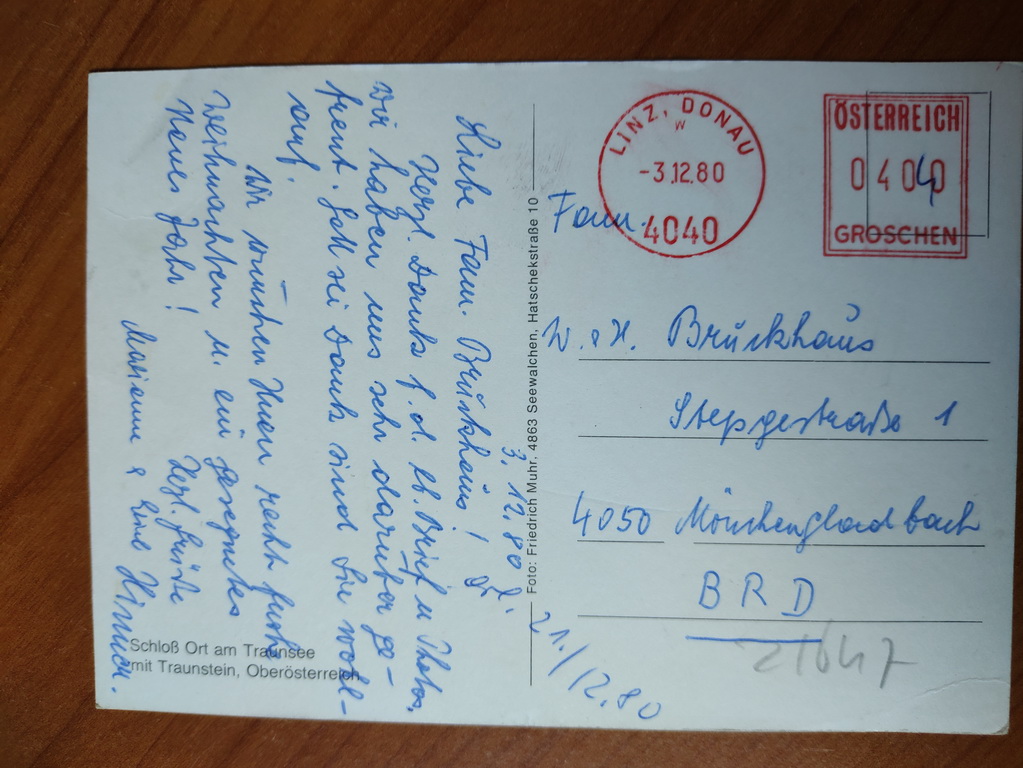 Liebe Fam. Brückhaus!
Herzl. Dank f. d. lb. Brief u Photos.
Wir haben uns sehr darüber ge-
freut. Gott sei Dank sind Sie wohl-
auf!
Wir wünschen Ihnen recht frohe
Weihnachten u. ein gesegnetes
Neues Jahr!
Herzl. Grüße
3.12.80
21./12.80
Schloß Ort am Traunsee
mit Traunstein, Oberösterreich
Foto: Friedrich Muhr, 4863 Seewalchen, Hatschekstraße 10
LINZ, DONAU
W
-3.12.80
4040
ÖSTERREICH
0400
GROSCHEN
4
Fam.
W. + H. Brückhaus
Stepgestraße 1
4050 Mönchengladbach
BRD
21647